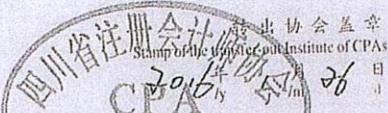 转出协会盖章
Stamp of the transfer-out Institute of CPAs
四川省注册会计师协会
2016年 月 26日
/y /m
CPA